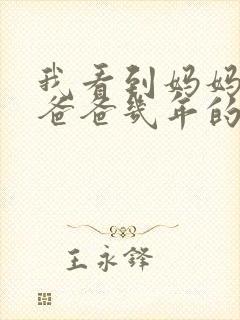 我看到妈妈
爸爸几年的
王永锋